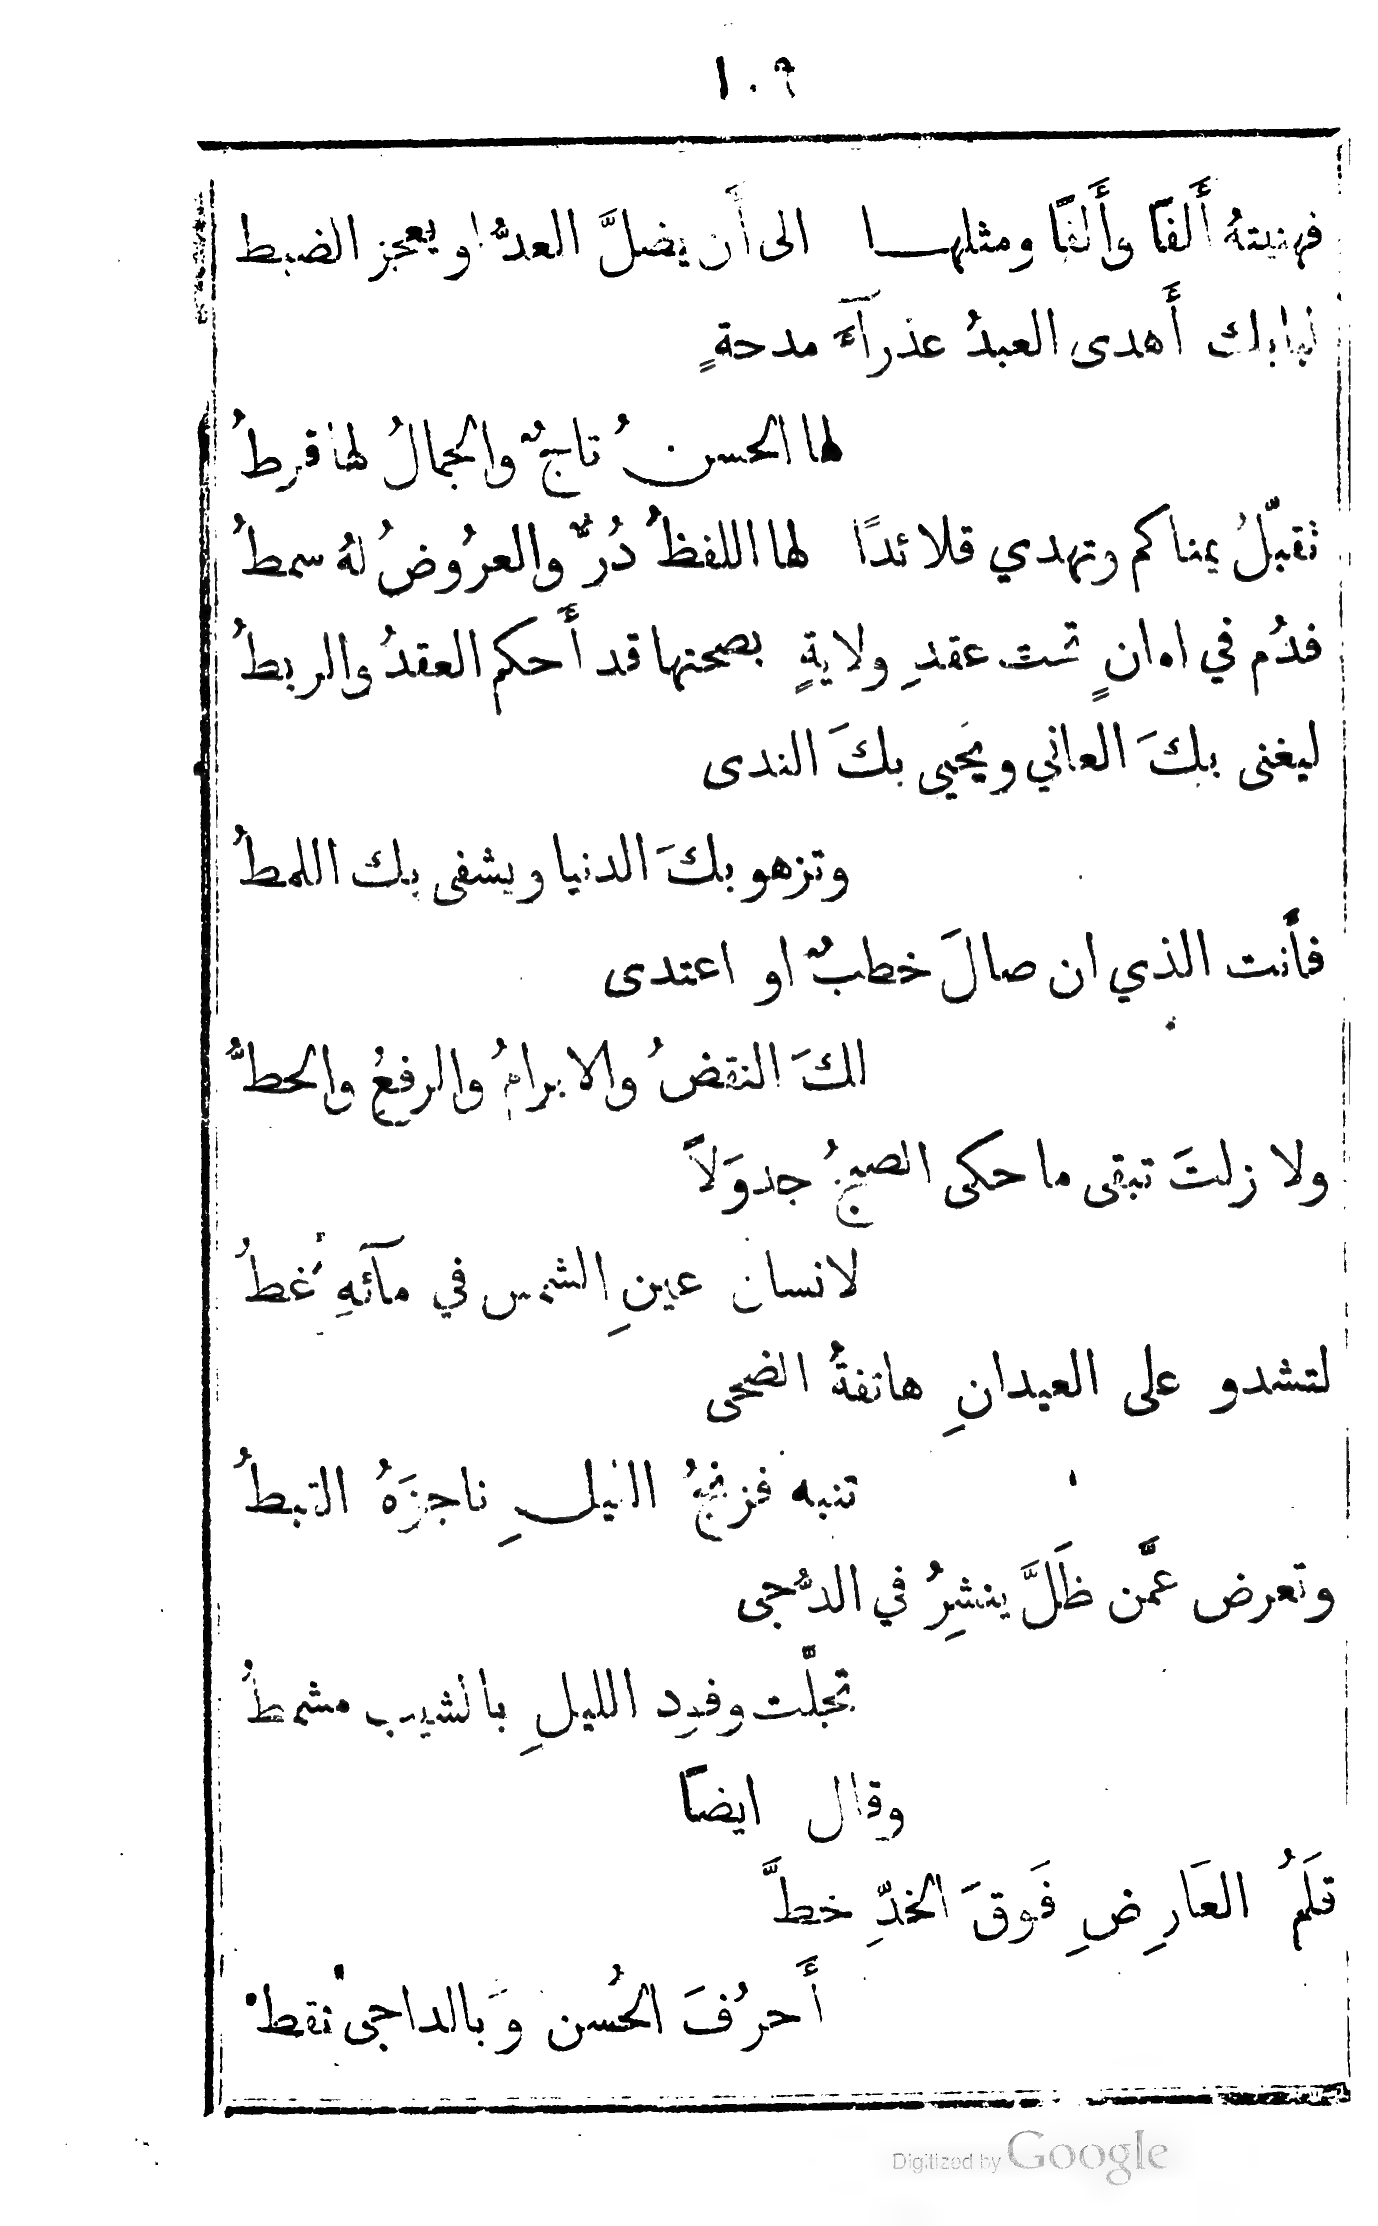 ١٠٩
فهنيتهُ أَلفًا وأَلفًا ومثلهـا الى أَن يضلَّ العدُّ او يعجز الضبط
لبابك أَهدى العبدُ عذرآءَ مدحةٍ
لها الحسنُ تاجٌ والجمالُ لها قرطُ
تقبّلُ يمناكم وتهدي قلائدًا لها اللفظُ دُرٌّ والعرُوضُ لهُ سمطُ
فدُم في امانٍ تحت عقدِ ولايةٍ بصحتها قد أَحكم العقدُ والربطُ
ليغنى بكَ العاني ويحيى بكَ الندى
وتزهو بكَ الدنيا ويشفى بك اللمطُ
فأَنت الذي ان صالَ خطبٌ او اعتدى
لكَ النقضُ والابرامُ والرفعُ والحطُّ
ولا زلتَ تبقى ما حكى الصبحُ جدوَلاً
لانسان عينِ الشمس في مآئهِ غطُ
لتشدو على العيدانِ هاتفةُ الضحى
تنبه فزنجيُ النيلِ ناجزَهُ القبطُ
وتعرض عمَّن ظَلَّ ينشرُ في الدُّجى
تجلَّت وفود الليلِ بالشيب مشمطُ
وقال ايضاً
قلَمُ العَارِضِ فَوقَ الخدِّ خطَّ
أَحرُفَ الحُسن وَبالداجى نقطْ
Digitized by Google